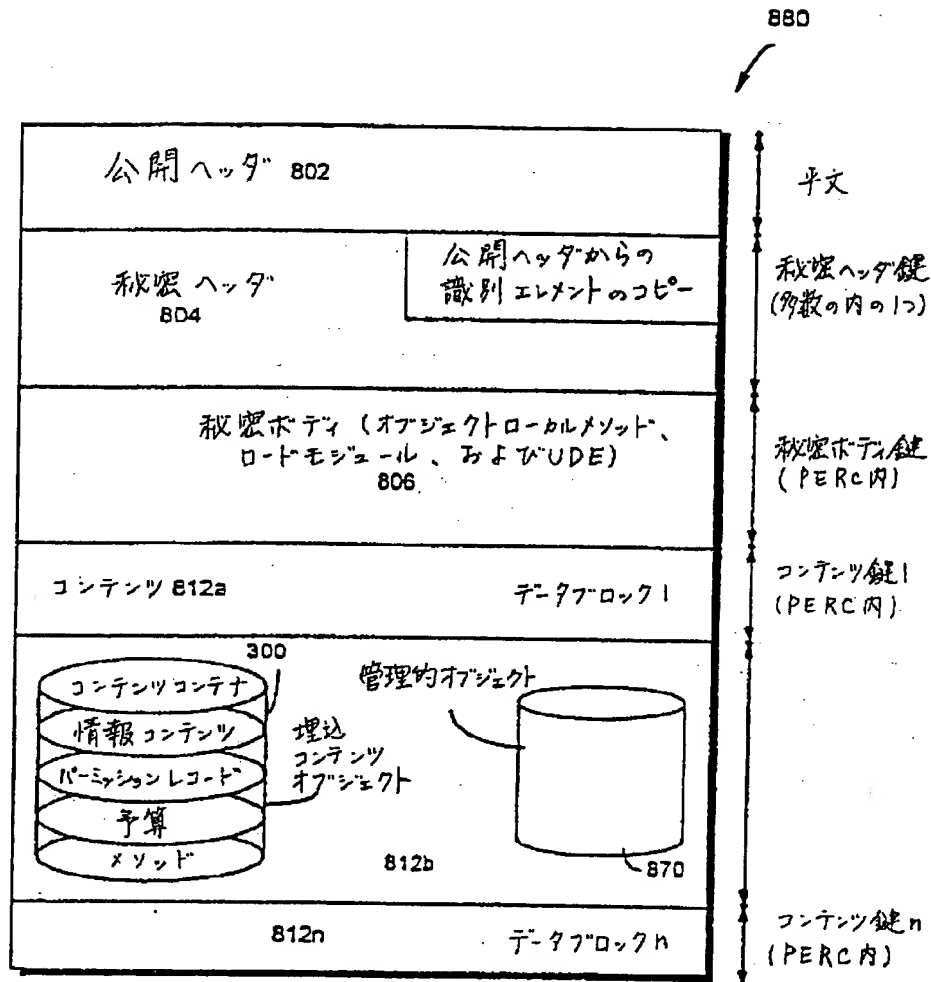 880
公開ヘッダ 802
平文
秘密ヘッダ
804
公開ヘッダからの
識別エレメントのコピー
秘密ヘッダ鍵
(多数の内の1つ)
秘密ボディ (オブジェクトローカルメソッド、
ロードモジュール、およびUDE)
806
秘密ボディ鍵
(PERC内)
コンテンツ 812a
データブロック1
コンテンツ鍵1
(PERC内)
300
コンテンツコンテナ
情報コンテンツ
パーミッションレコード
予算
メソッド
埋込
コンテンツ
オブジェクト
管理的オブジェクト
812b
870
812n
データブロックn
コンテンツ鍵n
(PERC内)